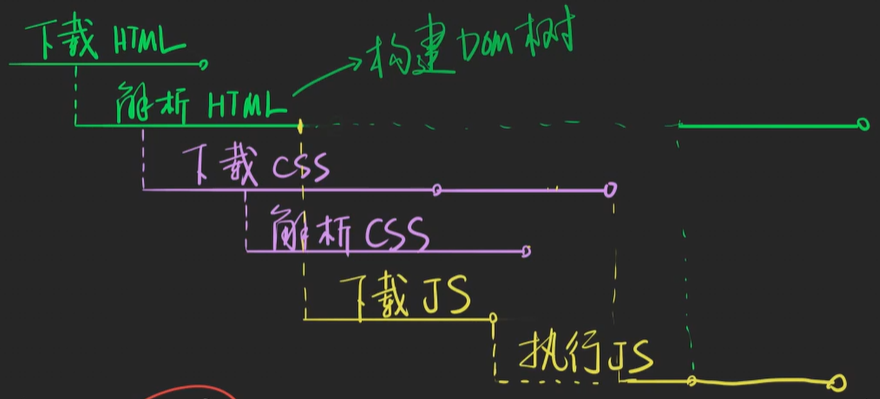 下载 HTML
构建 DOM 树
解析 HTML
下载 CSS
解析 CSS
下载 JS
执行 JS